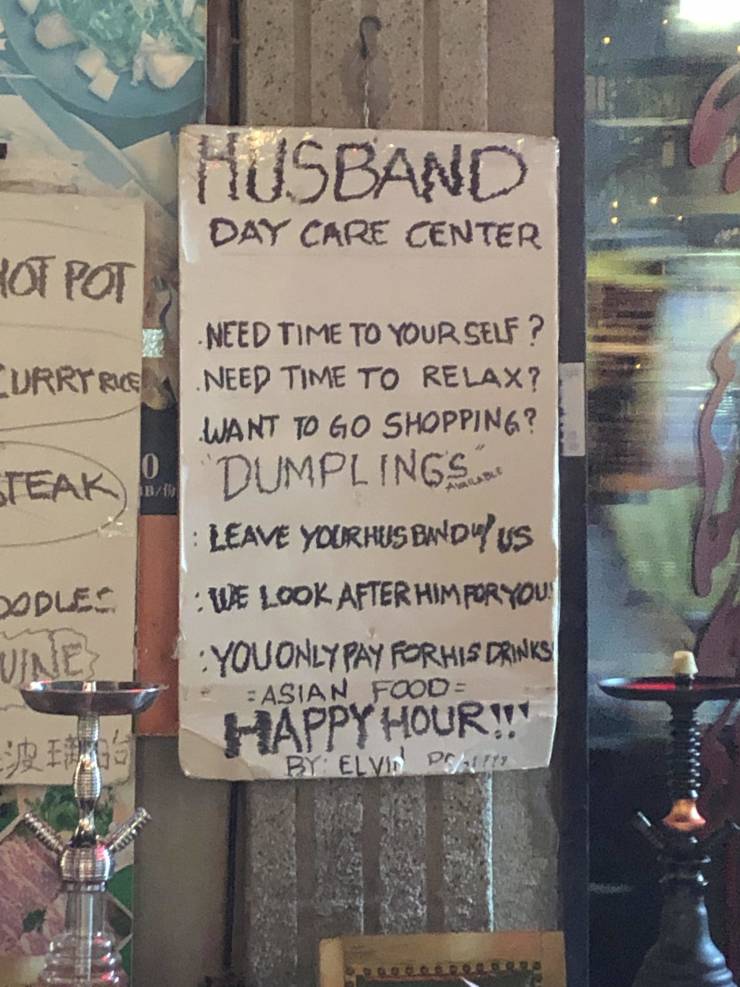 HUSBAND
DAY CARE CENTER
.NEED TIME TO YOUR SELF ?
.NEED TIME TO RELAX?
.WANT TO GO SHOPPING?
"DUMPLINGS" AVAILABLE
: LEAVE YOUR HUSBAND W/ US
: WE LOOK AFTER HIM FOR YOU!
: YOU ONLY PAY FOR HIS DRINKS
= ASIAN FOOD =
HAPPY HOUR!!!
BY: ELVIN
HOT POT
CURRY RICE
STEAK